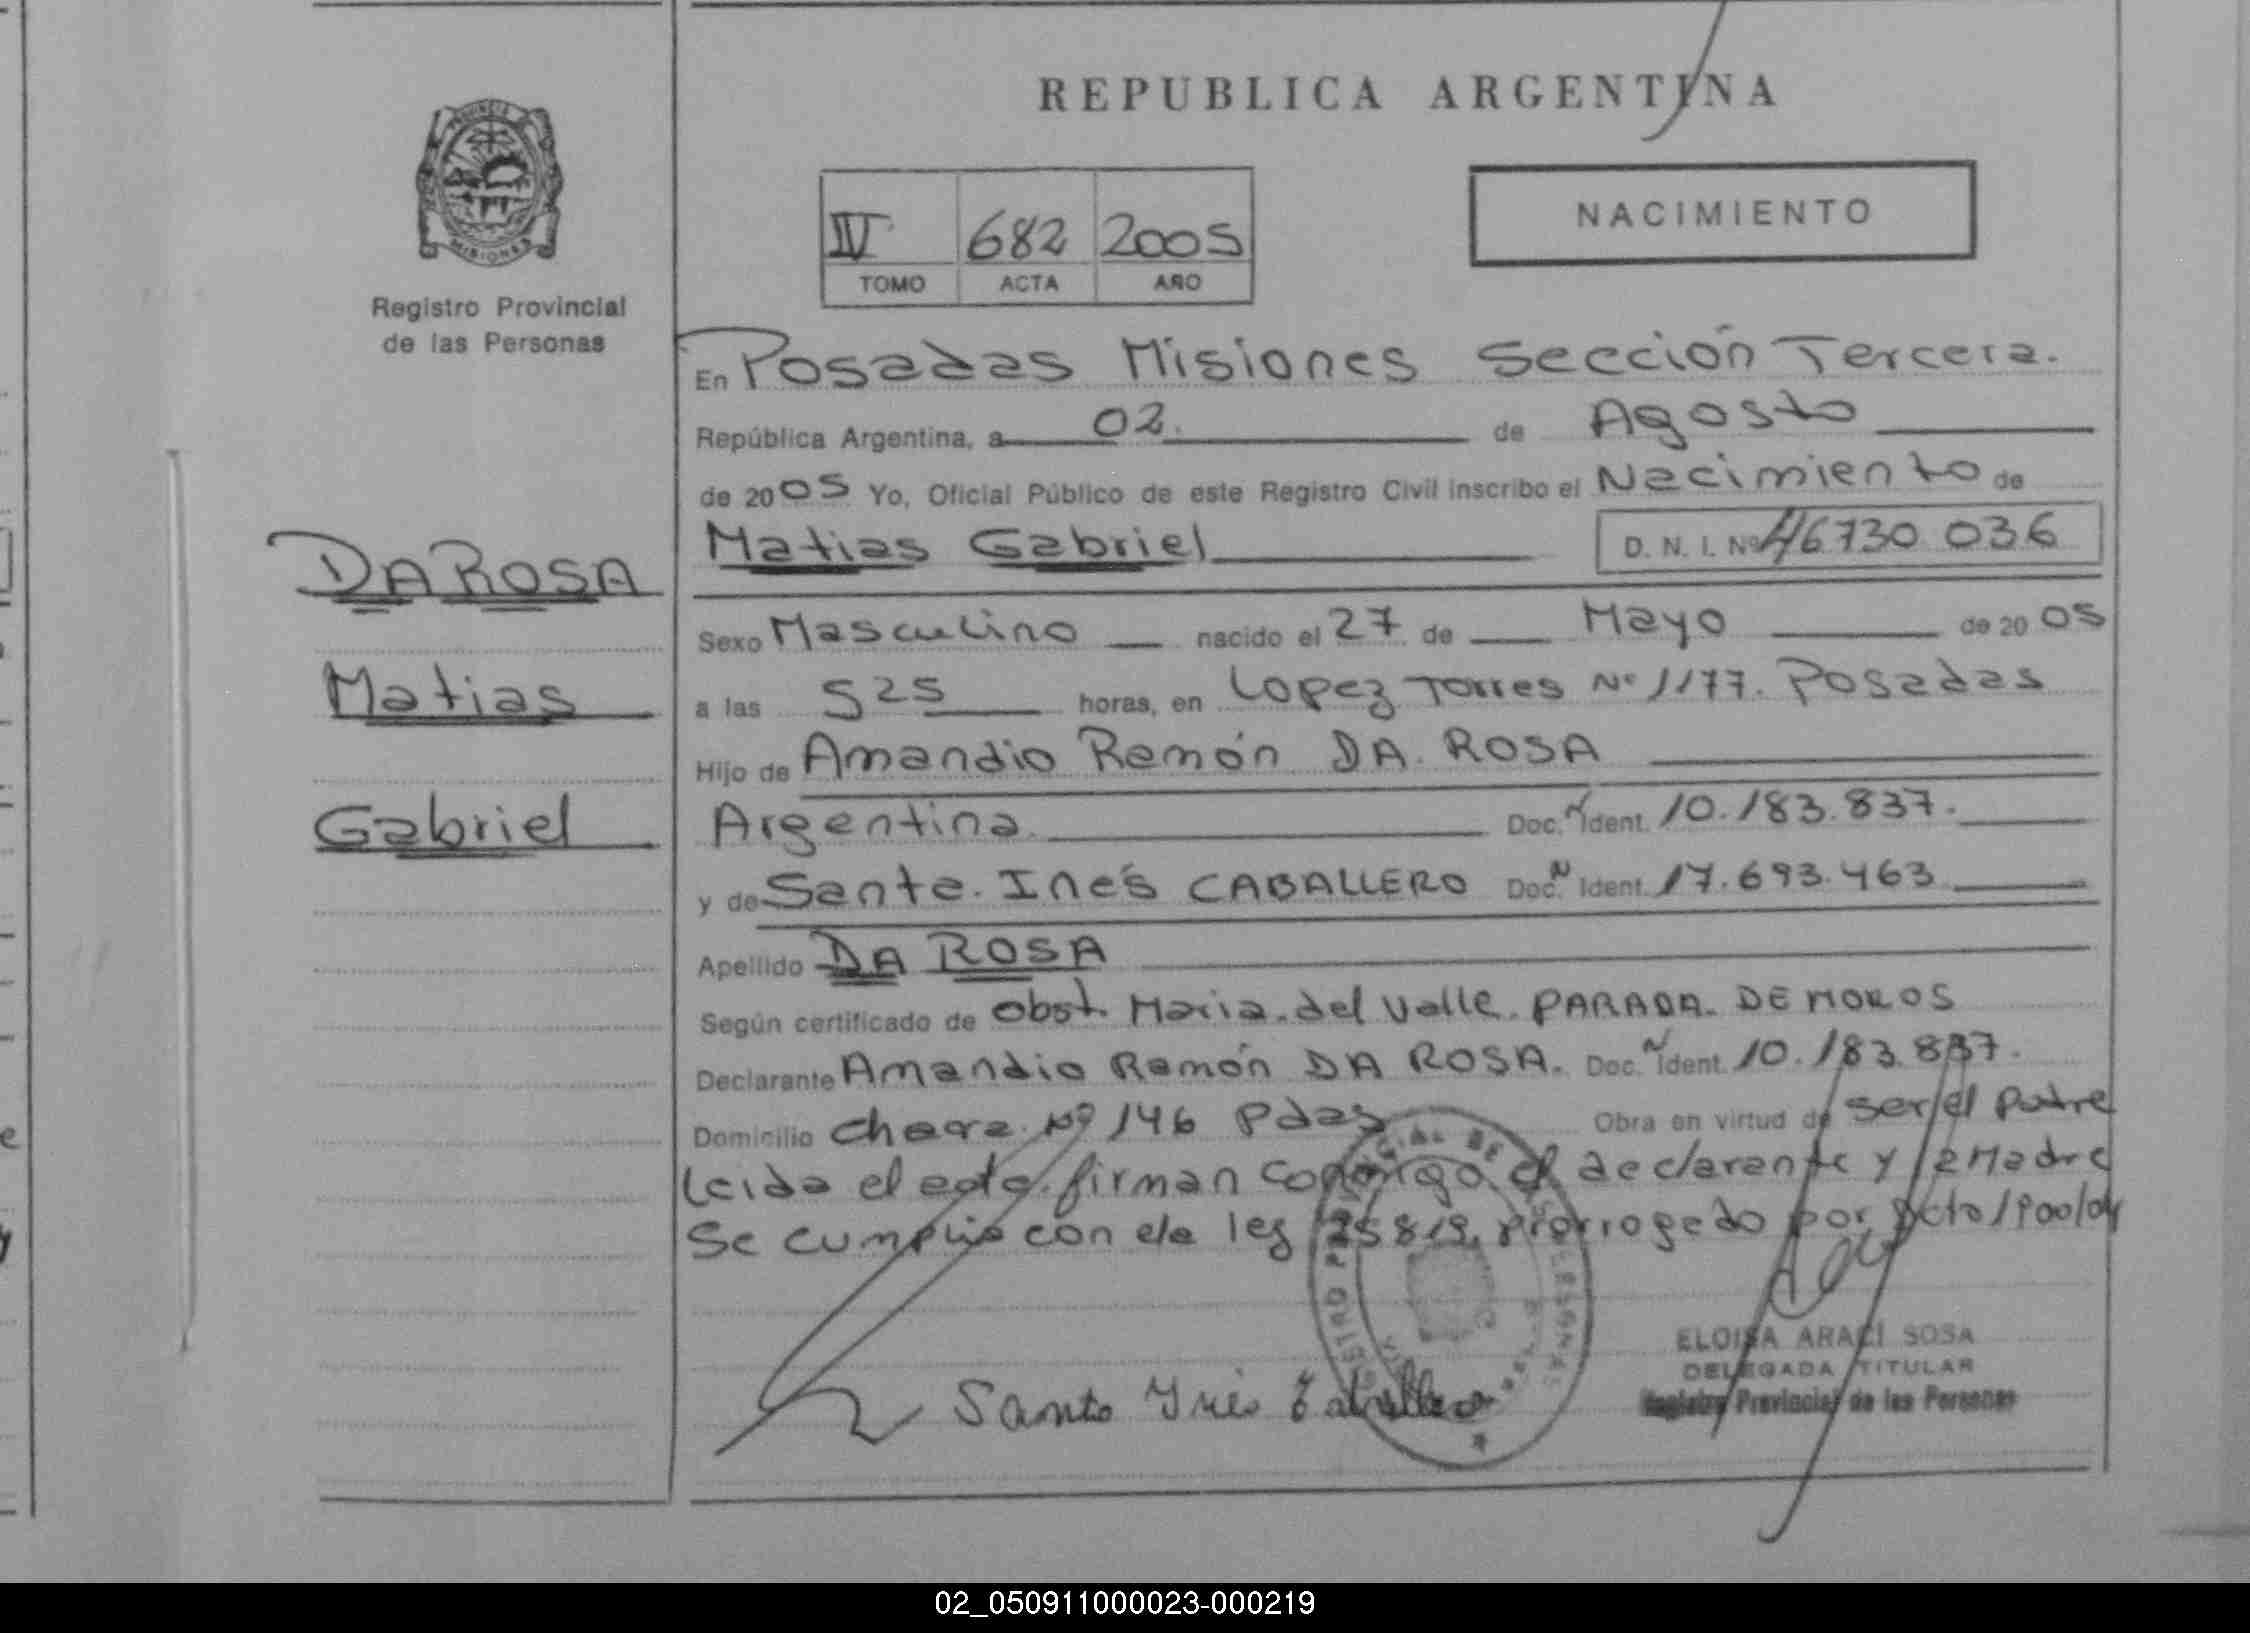 REPUBLICA ARGENTINA
PROVINCIA DE
MISIONES
Registro Provincial
de las Personas
IV 682 2005
TOMO ACTA AÑO
NACIMIENTO
En Posadas Misiones Sección Tercera.
República Argentina, a 02. de Agosto
de 2005 Yo, Oficial Público de este Registro Civil inscribo el Nacimiento de
Matias Gabriel D. N. I. Nº 46730 036
DA ROSA
Matias
Gabriel
Sexo Masculino nacido el 27 de Mayo de 2005
a las 525 horas, en Lopez Torres Nº 1177. Posadas
Hijo de Amandio Ramón DA. ROSA
Argentina Doc. Ident. 10.183.837.
y de Santa. Inés CABALLERO Doc. Ident. 17.693.463
Apellido DA ROSA
Según certificado de Obst. Maria. del Valle. PARADA. DE MOROS
Declarante Amandio Ramón DA ROSA. Doc. Ident. 10.183.837.
Domicilio Chacra. Nº 146 Pdas Obra en virtud de ser el Padre
Leida el acta. firman conmigo el declarante y la Madre
Se cumplio con ela ley 25819, prorrogado por Dcto/1900/04
Santa Inés Caballero
ELOISA ARACÍ SOSA
DELEGADA TITULAR
Registro Provincial de las Personas
02_050911000023-000219